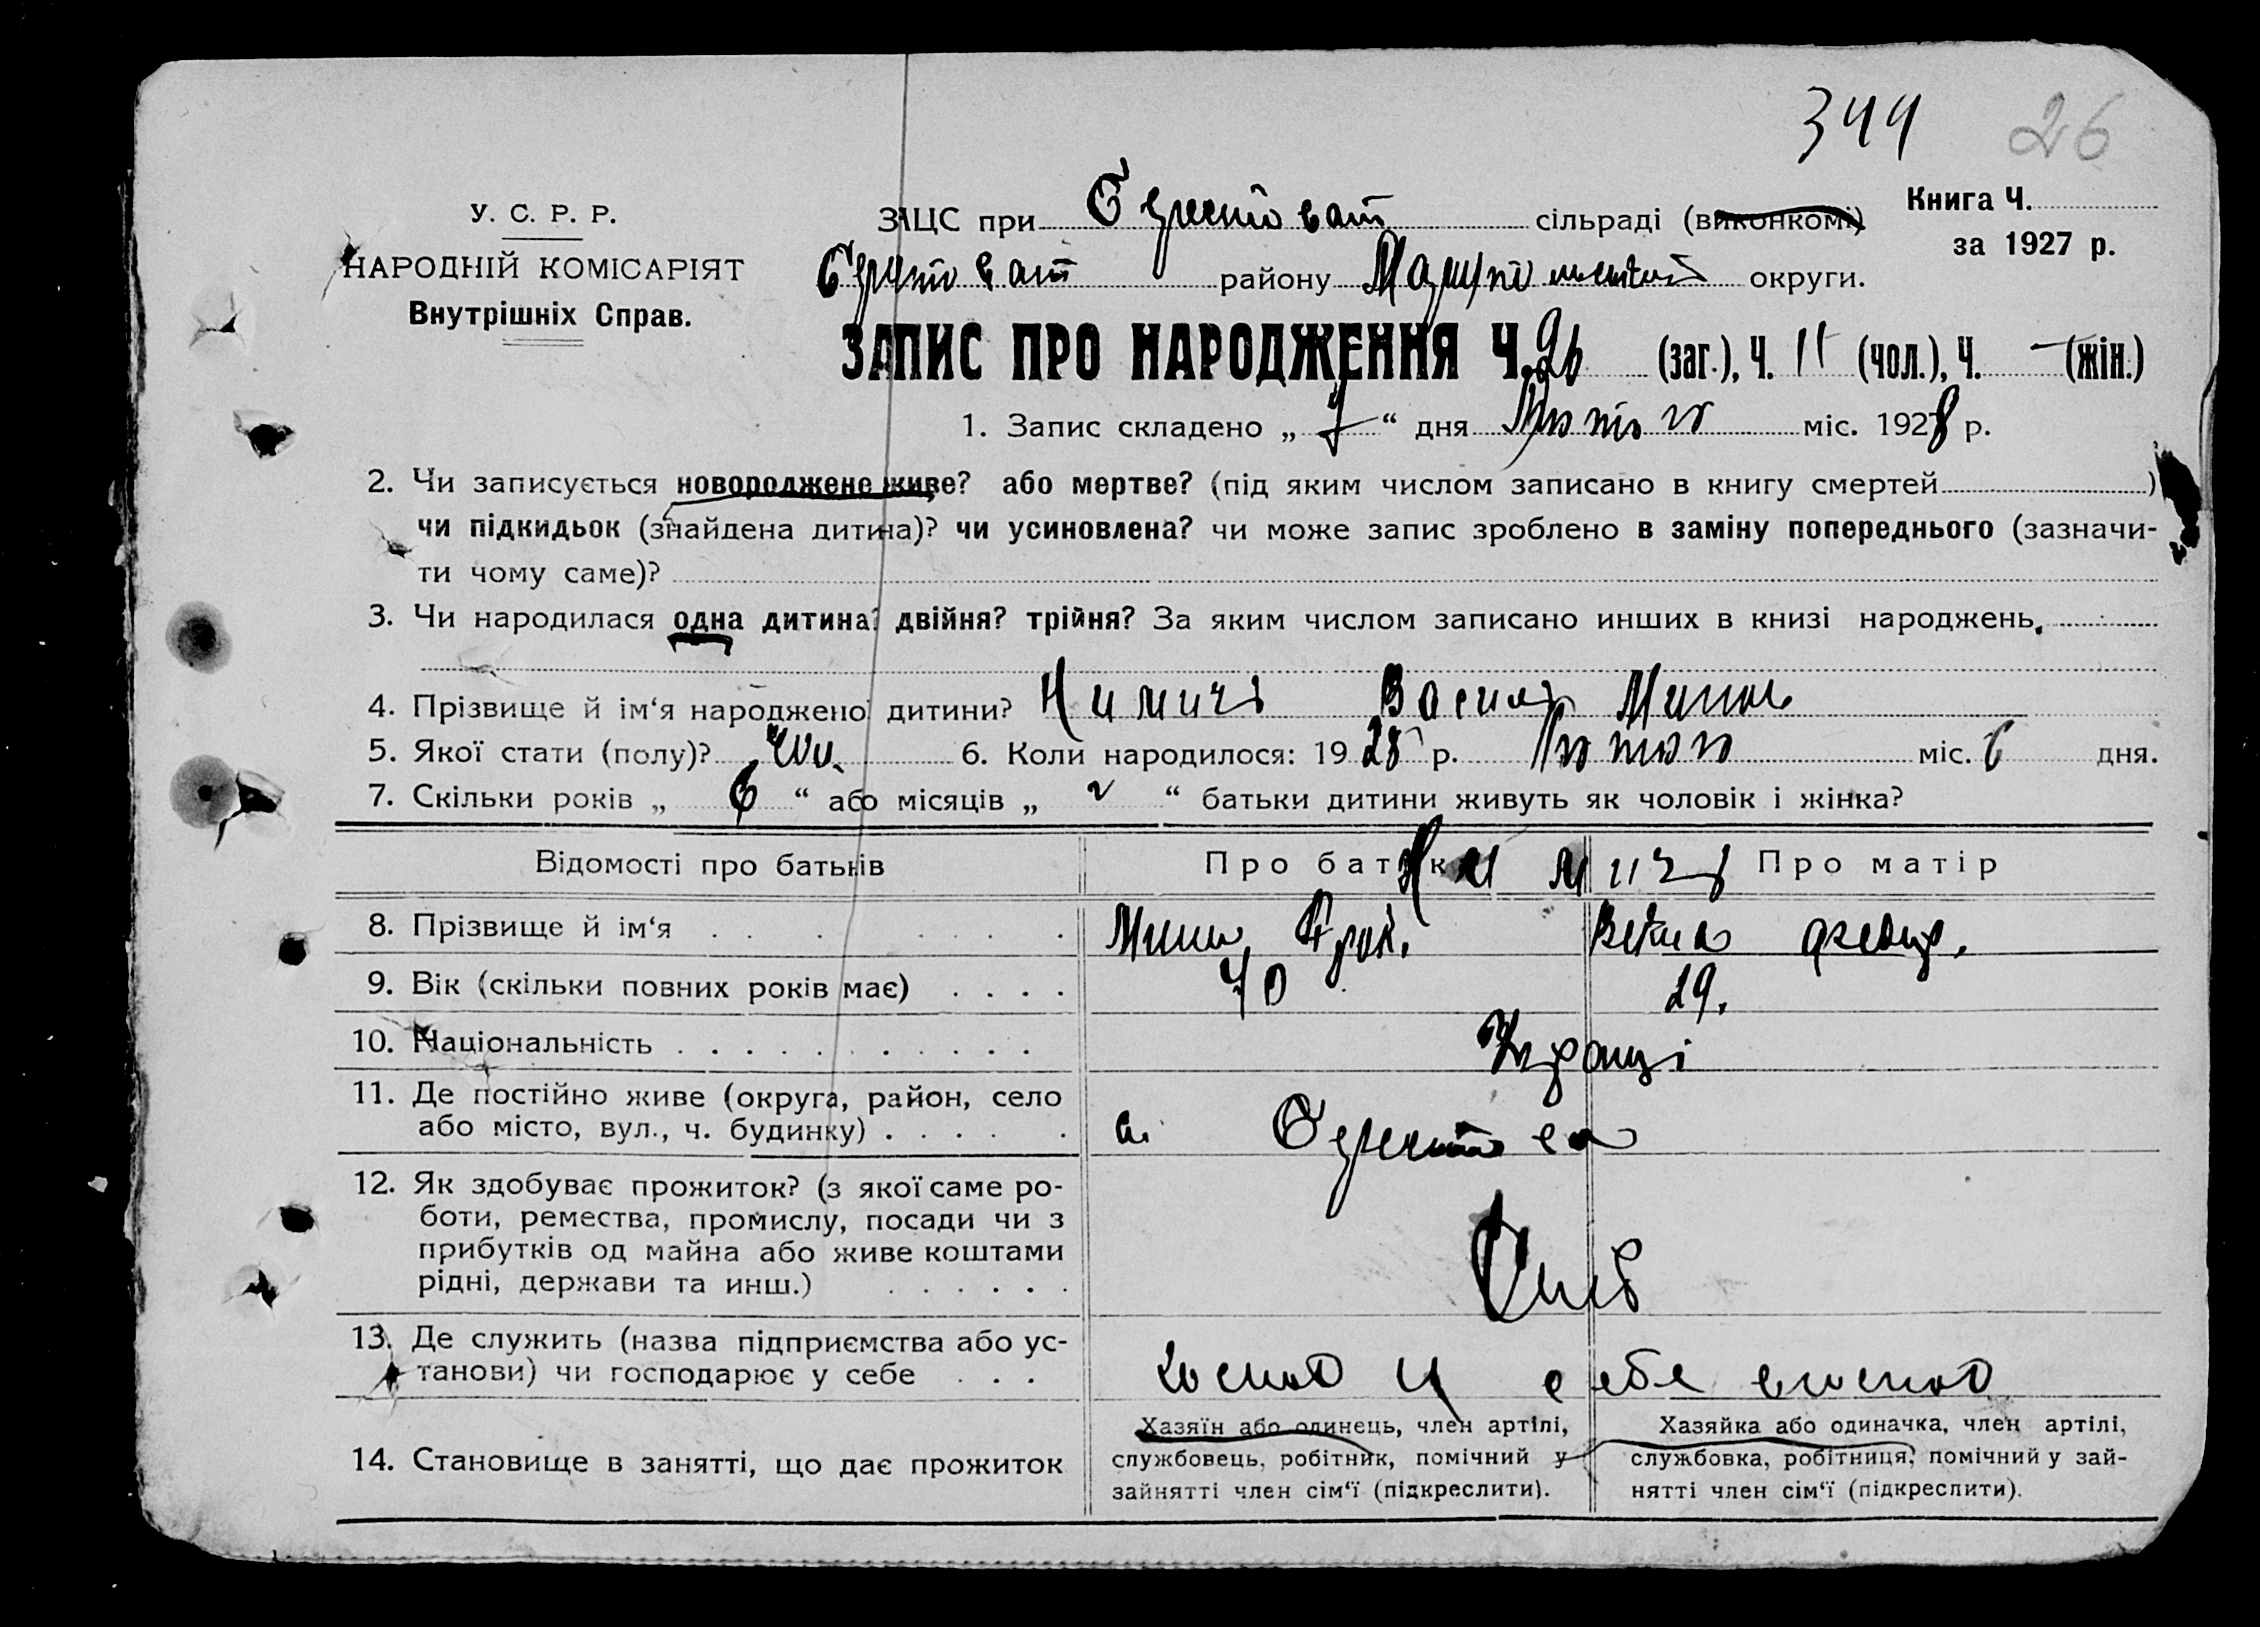 344 26
У. С. Р. Р.
НАРОДНІЙ КОМІСАРІЯТ
Внутрішніх Справ.
ЗАЦС при Берестоват сільраді (виконкомі)
Книга Ч.
за 1927 р.
Берестоват району Маріупольської округи.
ЗАПИС ПРО НАРОДЖЕННЯ Ч. 26 (заг.), Ч. 11 (чол.), Ч. — (жін.)
1. Запис складено „ 7 “ дня Лютого міс. 1928 р.
2. Чи записується новороджене живе? або мертве? (під яким числом записано в книгу смертей )
чи підкидьок (знайдена дитина)? чи усиновлена? чи може запис зроблено в заміну попереднього (зазначи-
ти чому саме)?
3. Чи народилася одна дитина? двійня? трійня? За яким числом записано инших в книзі народжень.
4. Прізвище й ім‘я народженої дитини? Василь
5. Якої стати (полу)? чол. 6. Коли народилося: 1928 р. Лютого міс. 6 дня.
7. Скільки років „ 6 “ або місяців „ “ батьки дитини живуть як чоловік і жінка?
Відомості про батьків Про батька Про матір
8. Прізвище й ім‘я
9. Вік (скільки повних років має) 40 29.
10. Національність Українці
11. Де постійно живе (округа, район, село
або місто, вул., ч. будинку) с. Берестова
12. Як здобуває прожиток? (з якої саме ро-
боти, ремества, промислу, посади чи з
прибутків од майна або живе коштами
рідні, держави та инш.)
13. Де служить (назва підприємства або ус-
танови) чи господарює у себе у себе
14. Становище в занятті, що дає прожиток
Хазяїн або одинець, член артілі,
службовець, робітник, помічний у
зайнятті член сім‘ї (підкреслити).
Хазяйка або одиначка, член артілі,
службовка, робітниця, помічний у зай-
нятті член сім‘ї (підкреслити).